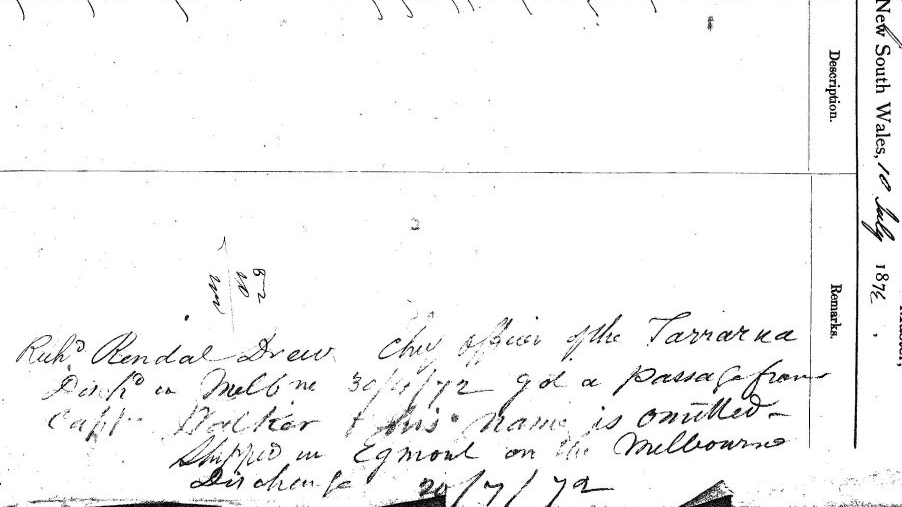 New South Wales, 10 July 1872.
Description.
Remarks.
Richd Rendal Drew Chief officer of the Tararua
Disch'd in Melbne 30/ /72 got a passage from
Capt Walker & his name is omitted -
Shipped in Egmont on the Melbourne
Discharge 20/7/72